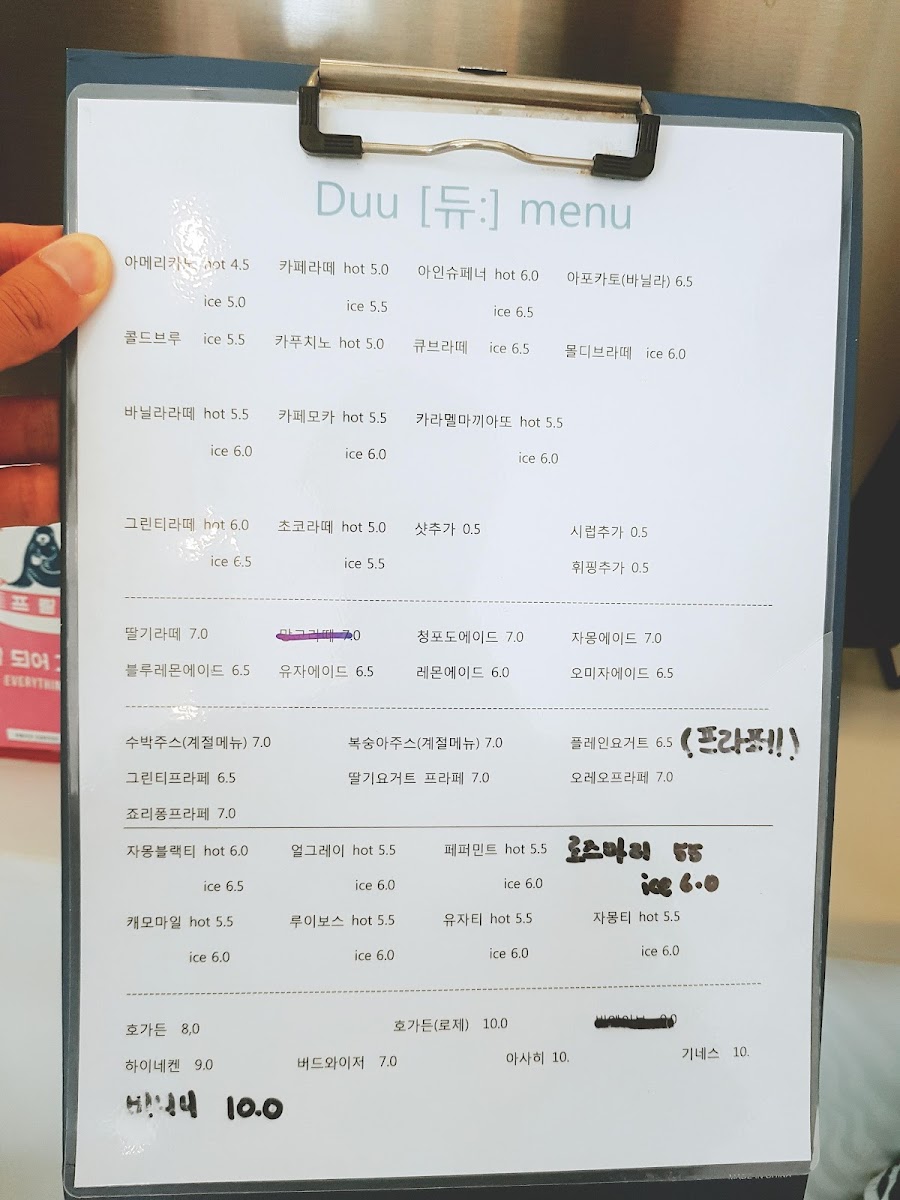 Duu [듀:] menu
아메리카노 hot 4.5 카페라떼 hot 5.0 아인슈페너 hot 6.0 아포카토(바닐라) 6.5
ice 5.0 ice 5.5 ice 6.5
콜드브루 ice 5.5 카푸치노 hot 5.0 큐브라떼 ice 6.5 몰디브라떼 ice 6.0
바닐라라떼 hot 5.5 카페모카 hot 5.5 카라멜마끼아또 hot 5.5
ice 6.0 ice 6.0 ice 6.0
그린티라떼 hot 6.0 초코라떼 hot 5.0 샷추가 0.5 시럽추가 0.5
ice 6.5 ice 5.5 휘핑추가 0.5
딸기라떼 7.0 망고라떼 7.0 청포도에이드 7.0 자몽에이드 7.0
블루레몬에이드 6.5 유자에이드 6.5 레몬에이드 6.0 오미자에이드 6.5
수박주스(계절메뉴) 7.0 복숭아주스(계절메뉴) 7.0 플레인요거트 6.5 (프라페!!)
그린티프라페 6.5 딸기요거트 프라페 7.0 오레오프라페 7.0
죠리퐁프라페 7.0
자몽블랙티 hot 6.0 얼그레이 hot 5.5 페퍼민트 hot 5.5 로즈마리 55
ice 6.5 ice 6.0 ice 6.0 ice 6.0
캐모마일 hot 5.5 루이보스 hot 5.5 유자티 hot 5.5 자몽티 hot 5.5
ice 6.0 ice 6.0 ice 6.0 ice 6.0
호가든 8,0 호가든(로제) 10.0
하이네켄 9.0 버드와이저 7.0 아사히 10. 기네스 10.
10.0
프 릴
되어
EVERYTHIN